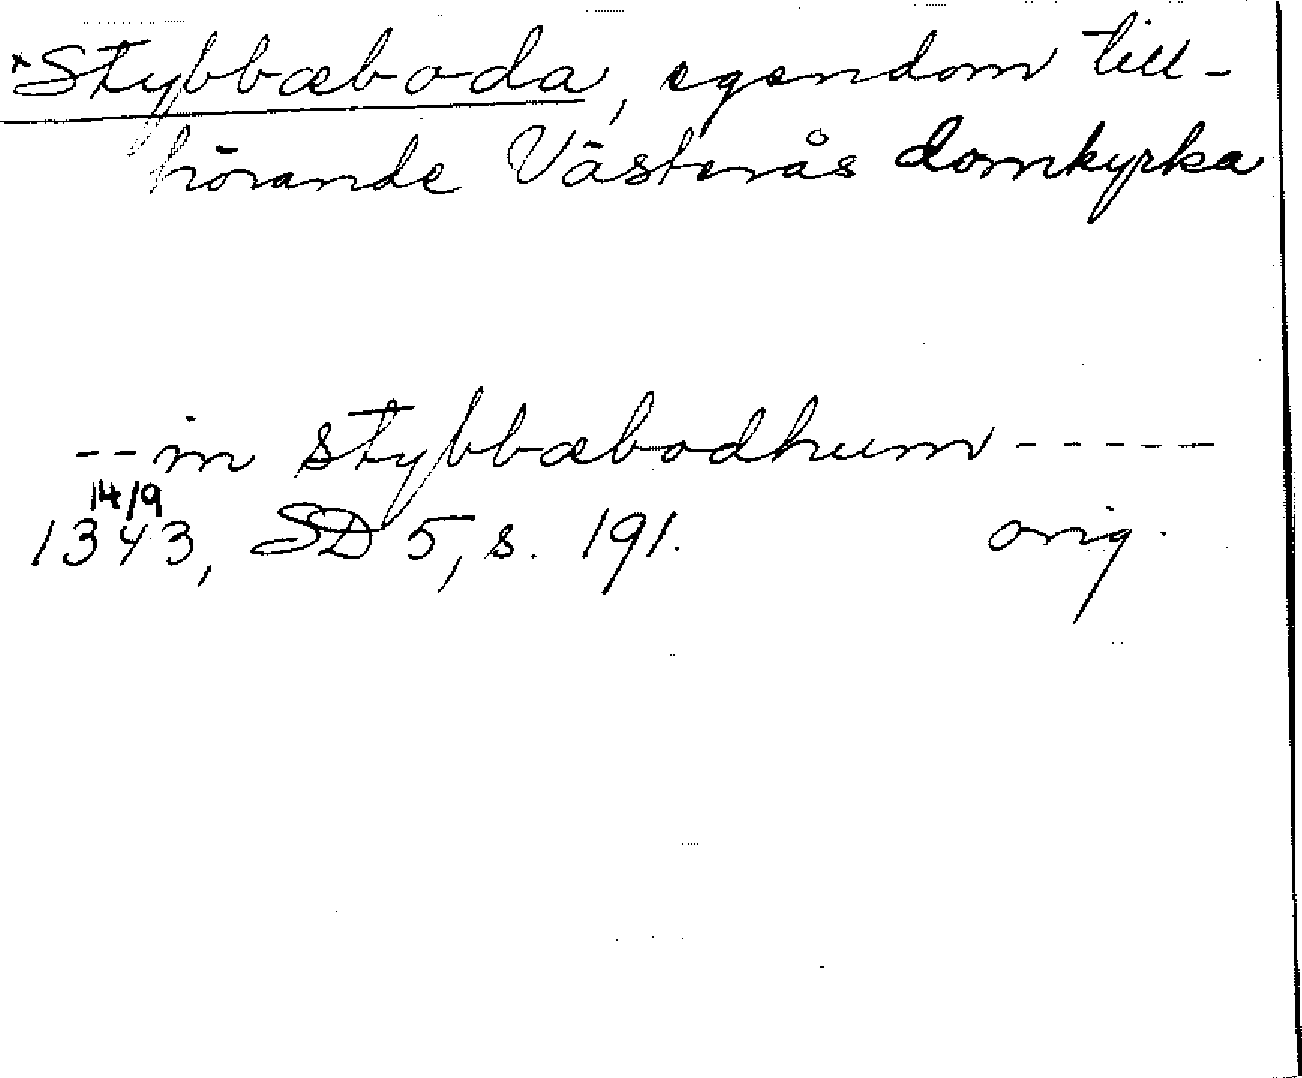 *Stybbæboda, egendom till-
hörande Västerås domkyrka
--in stybbæbodhum-----
14/9
1343, SD 5, s. 191. orig.